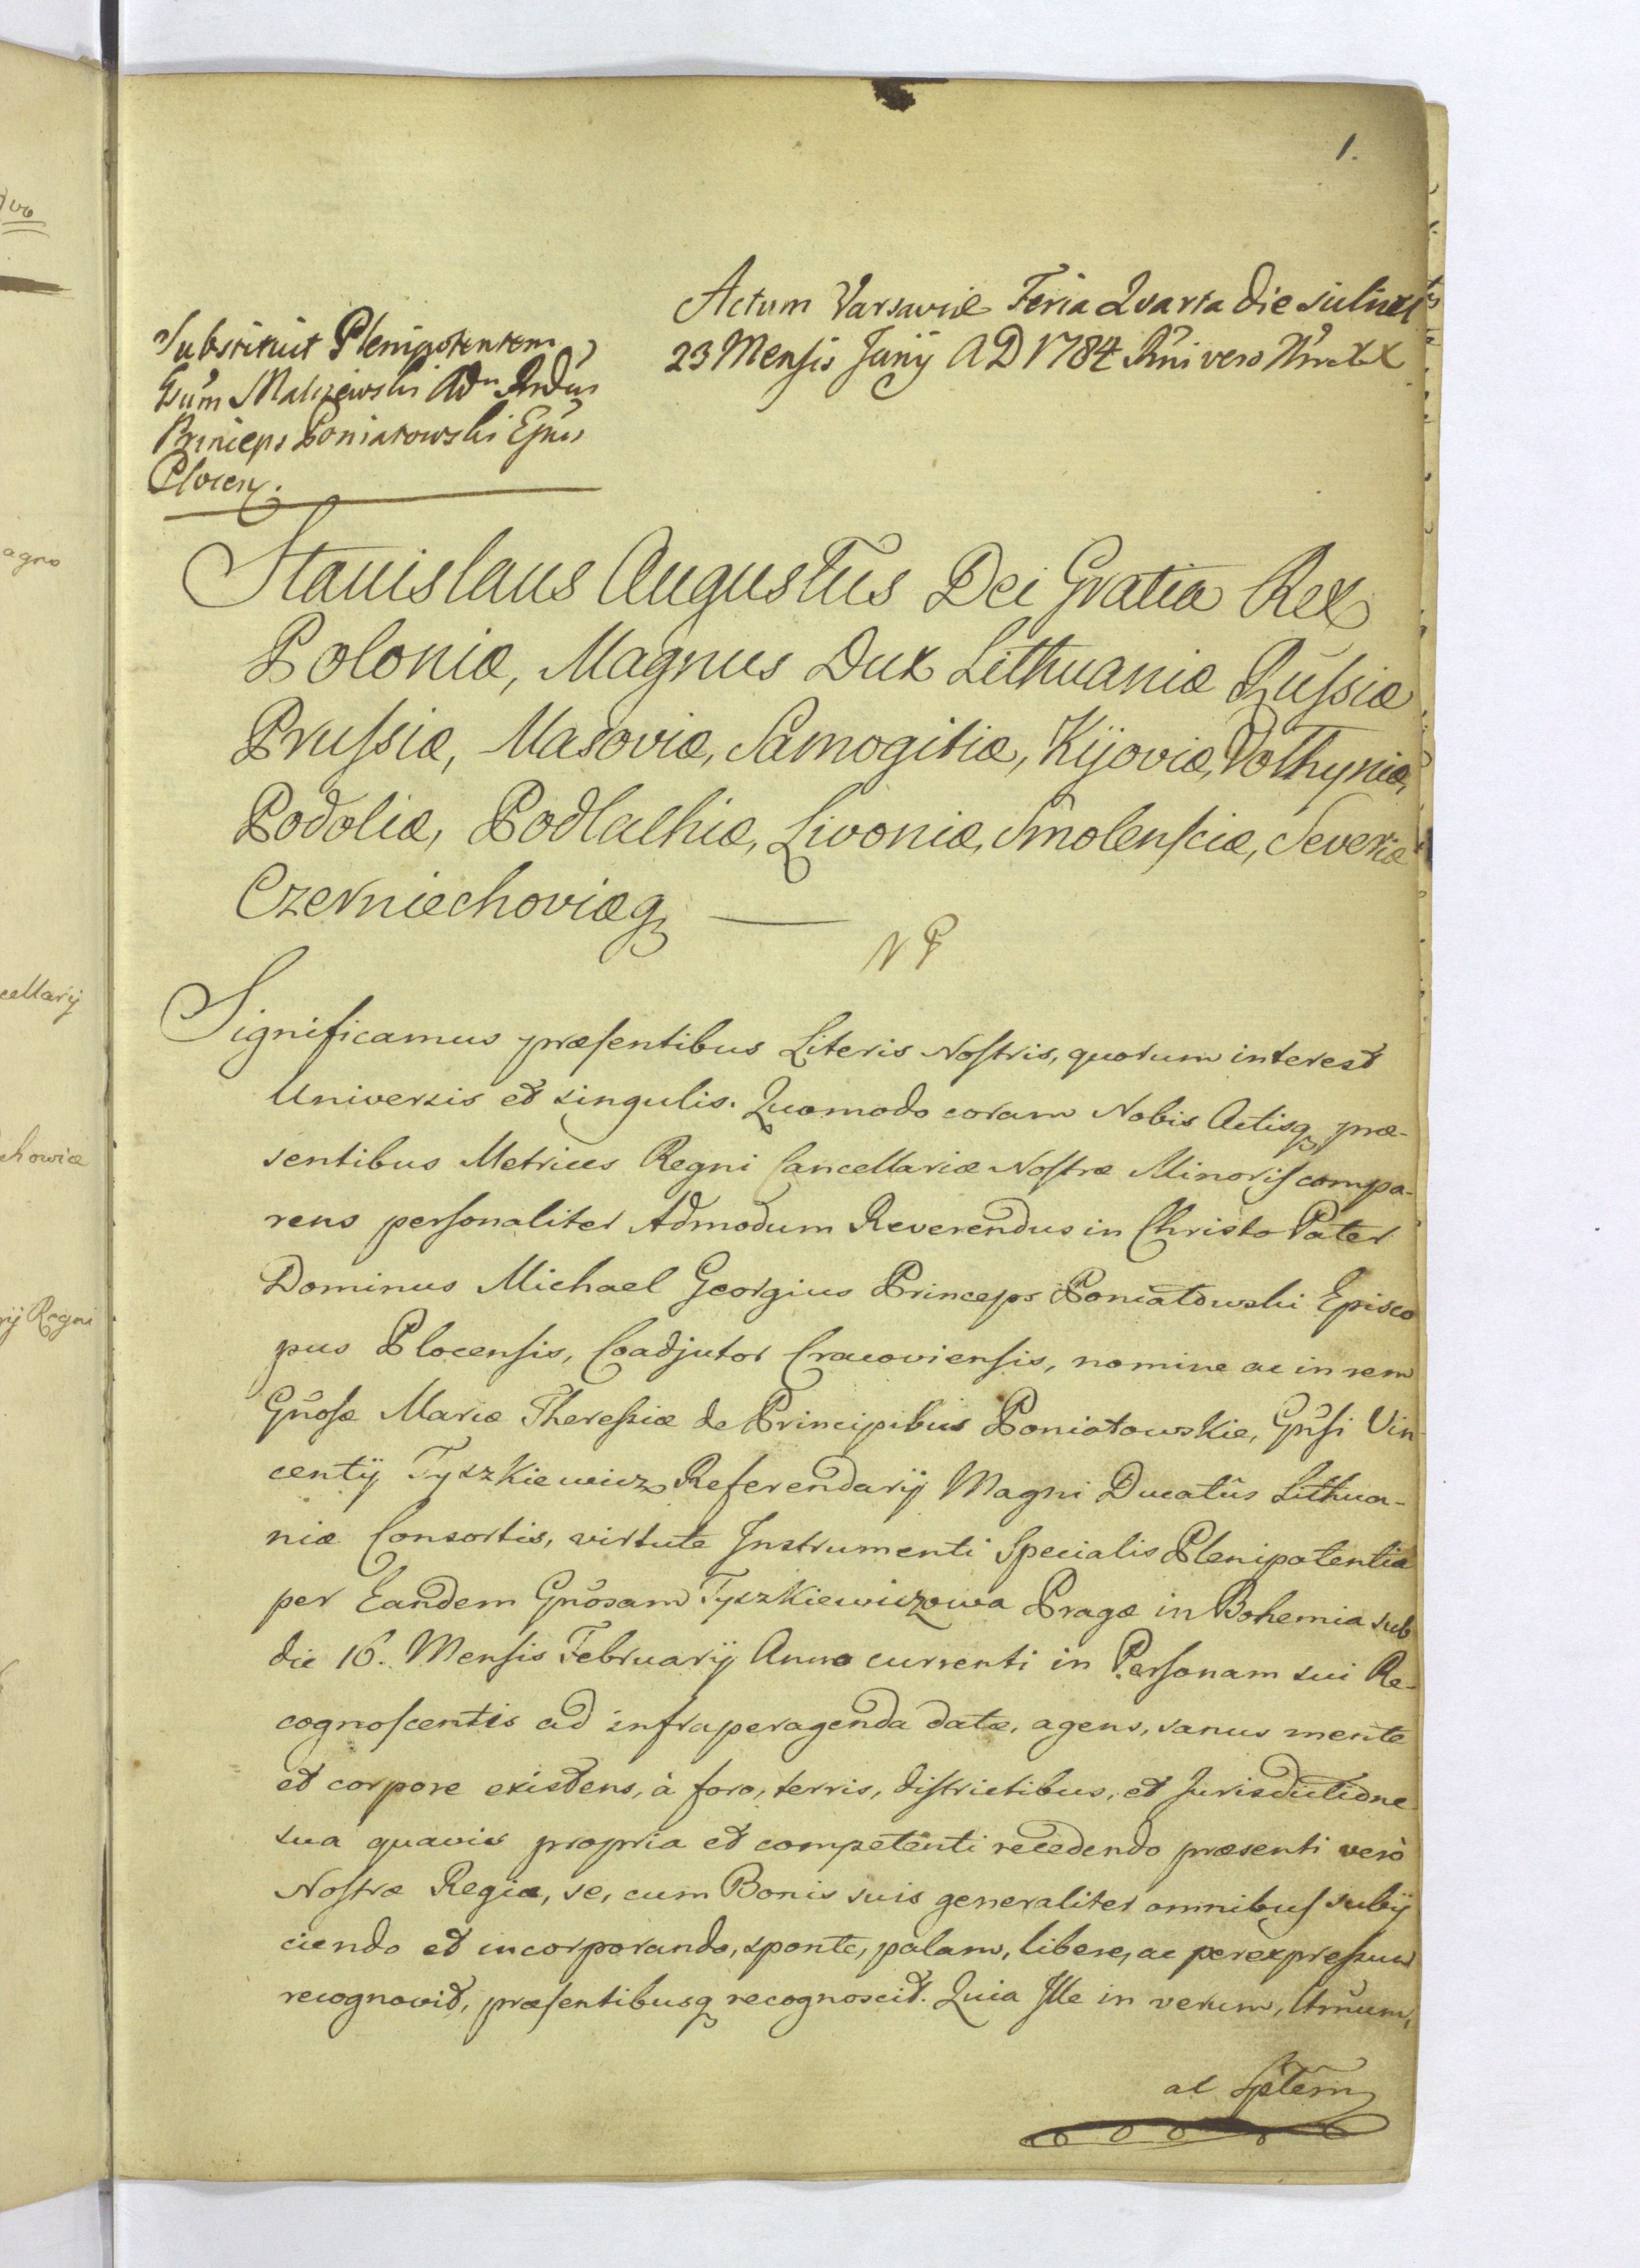 1.
Actum Varsaviæ Feria Quarta die scilicet
23 Mensis Junij AD 1784 Rñi vero Nri XX
Substituit Plenipotentem
Gsum Malczewski Adm Rndus
Princeps Poniatowski Epus
Plocen.
Stanislaus Augustus Dei Gratia Rex
Poloniæ, Magnus Dux Lithuaniæ Rußiæ
Prußiæ, Masoviæ, Samogitiæ, Kijoviæ, Volhyniæ,
Podoliæ, Podlachiæ, Livoniæ, Smolensciæ, Severiæ
Czerniechoviæq
Significamus præsentibus Literis Nostris, quorum interest
Universis et singulis. Quomodo coram Nobis Actisq præ-
sentibus Metrices Regni Cancellariæ Nostræ Minoris compa-
rens personaliter Admodum Reverendus in Christo Pater
Dominus Michael Georgius Princeps Poniatowski Episco
pus Plocensis, Coadjutor Cracoviensis, nomine ac in rem
Gñosæ Mariæ Thereßiæ de Principibus Poniatowskie, Gñsi Vin-
centij Tyszkiewicz Referendarij Magni Ducatûs Lithua-
niæ Consortis, virtute Instrumenti Specialis Plenipotentiæ
per Eandem Gñosam Tyszkiewiczowa Pragæ in Bohemia sub
die 16. Mensis Februarij Anno currenti in Personam sui Re-
cognoscentis ad infra peragenda datæ, agens, sanus mente
et corpore existens, à foro, terris, districtibus, et Jurisdictione
sua quavis propria et competenti recedendo præsenti verò
Nostræ Regiæ, se, cum Bonis suis generaliter omnibus subij
ciendo et incorporando, sponte, palam, libere, ac per expreßum
recognovit, præsentibusq recognoscit. Quia Ille in verum,
ac Sptem